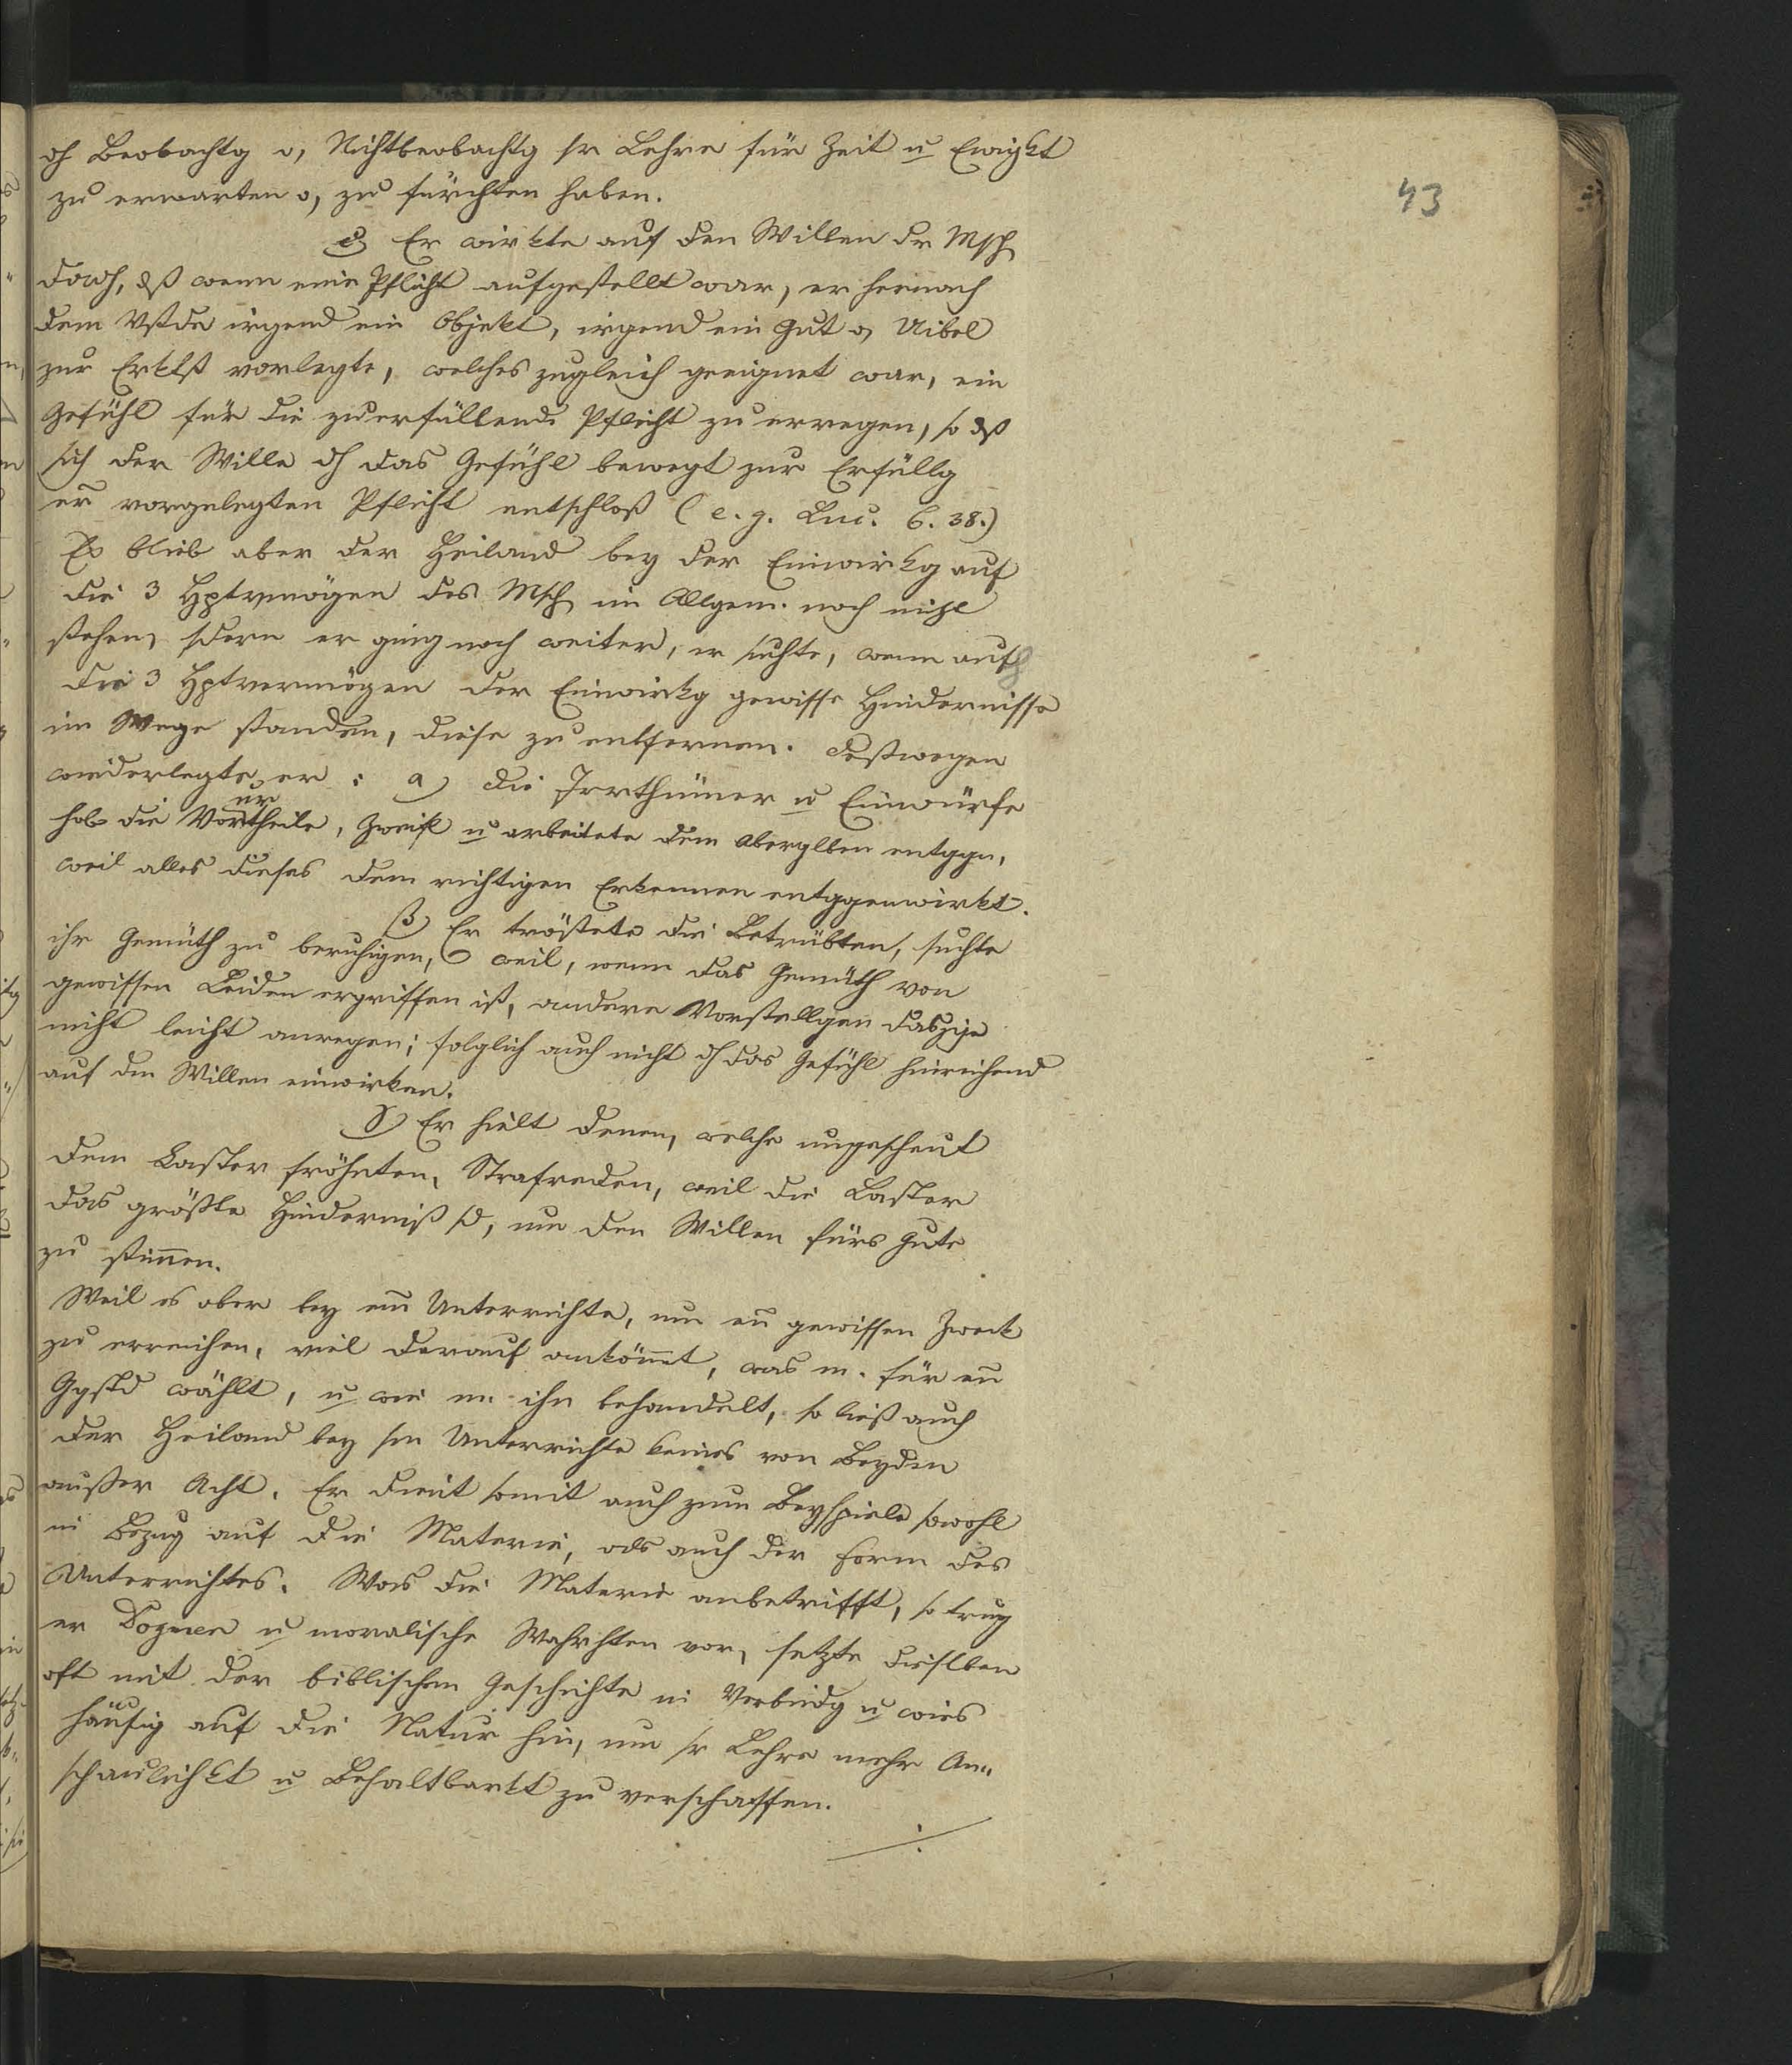 43
dh Beobachtg o, Nichtbeobachtg sr Lehre für Zeit u Ewigkt
zu erwarten o, zu fürchten haben.
c) Er wirkte auf den Willen dr Msch
dadch, dß wenn eine Pflicht aufgestellt war, er hernach
dem Vstde irgend ein Objekt, irgend ein Gut o, Uibel
zur Erktß vorlegte, welches zugleich geeignet war, ein
Gefühl für die zuerfüllende Pflicht zu erregen, so dß
sich der Wille dh das Gefühl bewegt zur Erfüllg
er vorgelegten Pflicht entschloß (e. g. Luc. 6. 38.)
Es blieb aber der Heiland bey der Einwirkg auf
die 3 Hptvmögen des Msch im Allgem. noch nicht
stehen, sdern er ging noch weiter, er suchte, wenn auf
die 3 Hptvermögen der Einwirkg gewisse Hindernisse
im Wege standen, diese zu entfernen. Deßwegen
wiederlegte er: a) die Irrthümer u Einwürfe
ur
hob die Vortheile, Zweifl u arbeitete dem Aberglben entggn,
weil alles dieses dem richtigen Erkennen entggenwirkt.
ß) Er tröstete die Betrübten, suchte
ihr Gemüth zu beruhigen, weil, wenn das Gemüth von
gewissen Leiden ergriffen ist, andere Vorstellgen dasjge
nicht leicht anregen; folglich auch nicht dh das Gefühl hinreichend
auf den Willen einwirken.
γ) Er hielt denen, welche ungescheut
dem Laster fröhnten, Strafreden, weil die Laster
das größte Hinderniß sd, um den Willen fürs Gute
zu stim̅en.
Weil es aber bey ein̅ Unterrichte, um en̅ gewissen Zweck
zu erreichen, viel darauf anköm̅t, was m. für en̅
Ggstd wählt, u wie m. ihn behandelt, so ließ auch
der Heiland bey sm Unterrichte keines von Beyden
außer Acht. Er dient somit auch zum Beyspiele sowohl
in Bezug auf die Materie, als auch der Form des
Unterrichtes. Was die Materie anbetrifft, so trug
er Dogmen u moralische Wahrhten vor, setzte dieselben
oft mit der biblischen Geschichte in Verbindg u wies
häufig auf die Natur hin, um sr Lehre mehr An„
schaulichkt u Behaltbarkt zu verschaffen.